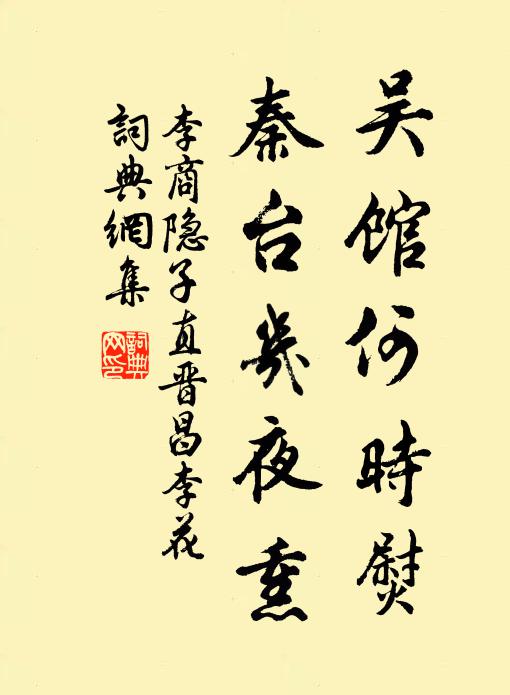 吴馆何時熨
秦台幾夜熏
李商隐子直晋昌李花
詞典網集
詞典網印